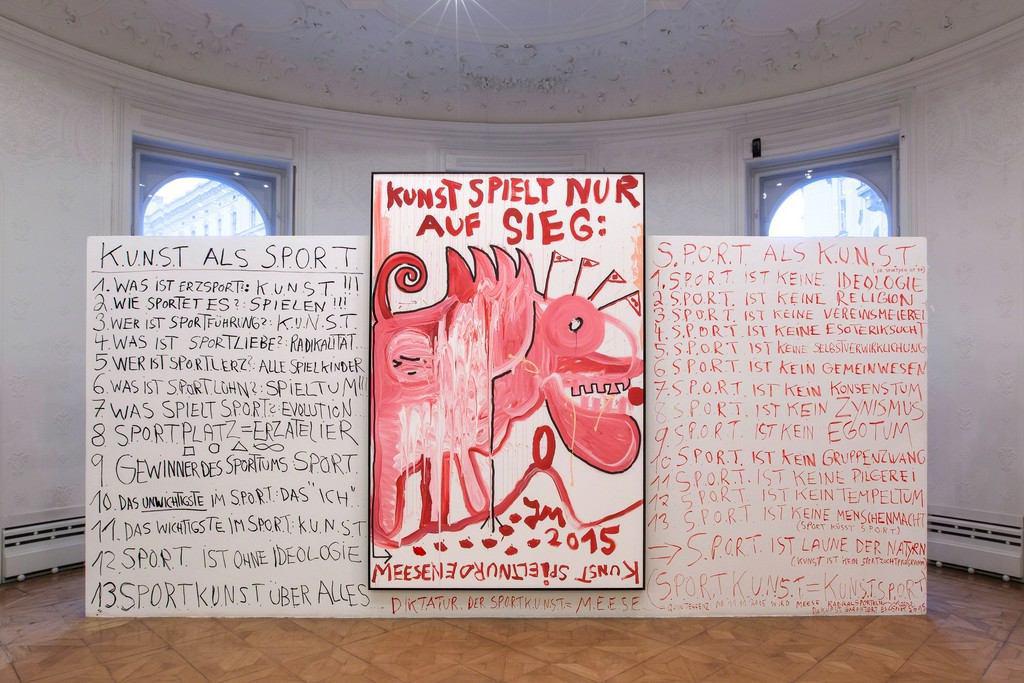 K.U.N.S.T ALS S.P.O.R.T
1. WAS IST ERZSPORT?: K.U.N.S.T !!!
2. WIE SPORTET ES?: SPIELEN !!!
3. WER IST SPORTFÜHRUNG?: K.U.N.S.T
4. WAS IST SPORTLIEBE?: RADIKALITÄT..
5. WER IST SPORTLERZ?: ALLE SPIELKINDER
6. WAS IST SPORTLOHN?: SPIELTUM!!!
7 WAS SPIELT SPORT?: EVOLUTION..
8 SPORTPLATZ=ERZATELIER
9 GEWINNER DES SPORTTUMS SPORT
10. DAS UNWICHTIGSTE IM SPORT: DAS "ICH"
11. DAS WICHTIGSTE IM SPORT: K.U.N.S.T
12 SPORT IST OHNE IDEOLOGIE
13 SPORTKUNST ÜBER ALLES
KUNST SPIELT NUR
AUF SIEG:
JM
2015
MEESEN
KUNST SPIELT NUR DEN
DIKTATUR DER SPORTKUNST= M.E.E.S.E
S.P.O.R.T ALS K.U.N.S.T
1. S.P.O.R.T. IST KEINE IDEOLOGIE
2 S.P.O.R.T. IST KEINE RELIGION
3 S.P.O.R.T. IST KEINE VEREINSMEIEREI
4. S.P.O.R.T. IST KEINE ESOTERIKSUCHT
5. S.P.O.R.T. IST KEINE SELBSTVERWIRKLICHUNG
6 S.P.O.R.T. IST KEIN GEMEINWESEN
7 S.P.O.R.T. IST KEIN KONSENSTUM
8 S.P.O.R.T. IST KEIN ZYNISMUS
9 S.P.O.R.T. IST KEIN EGOTUM
10 S.P.O.R.T. IST KEIN GRUPPENZWANG
11 S.P.O.R.T. IST KEINE PILGEREI
12 S.P.O.R.T. IST KEIN TEMPELTUM
13. S.P.O.R.T. IST KEINE MENSCHENMACHT
(SPORT KÜSST S.P.O.R.T)
→ S.P.O.R.T. IST LAUNE DER NATUR
(KUNST IST KEIN SPORTZUCHTPROGRAMM)
SPORTKUNST=KUNSTSPORT